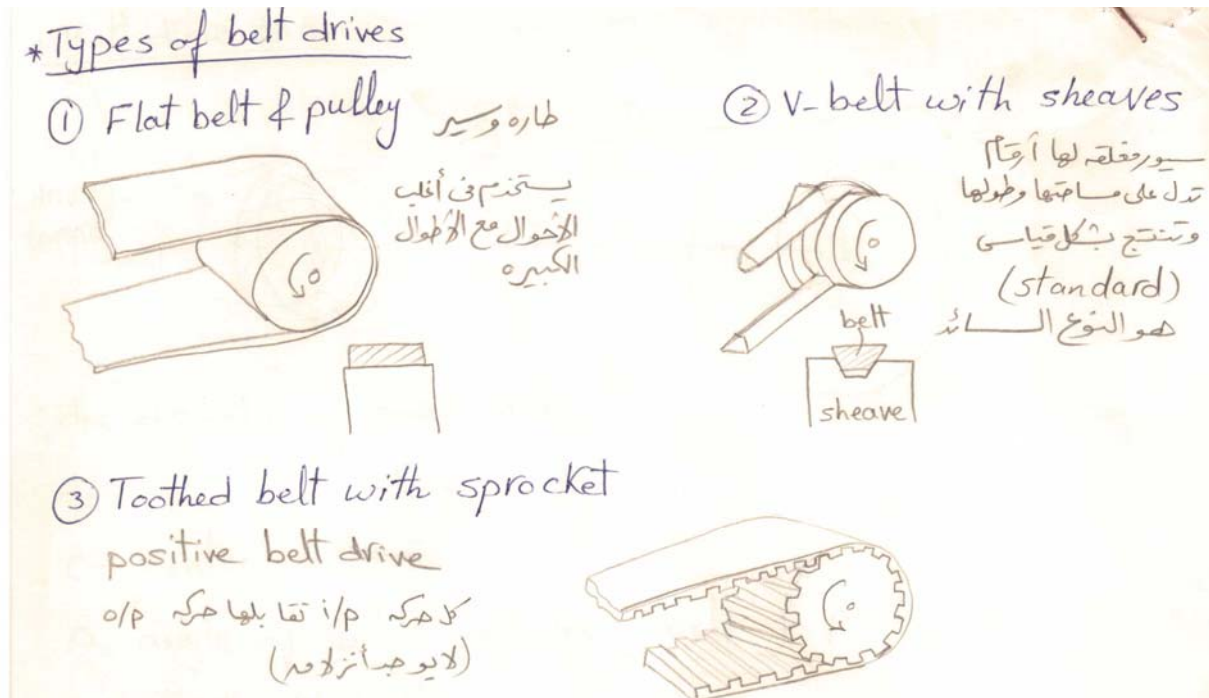 * Types of belt drives
① Flat belt & pulley طاره وسير
يستخدم فى أغلب
الأحوال مع الأطوال
الكبيره
② V-belt with sheaves
سيور مغلقه لها أرقام
تدل على مساحتها وطولها
وتنتج بشكل قياسى
(standard)
هو النوع السائد
belt
sheave
③ Toothed belt with sprocket
positive belt drive
كل حركه i/p تقابلها حركه o/p
(لا يوجد أنزلاق)